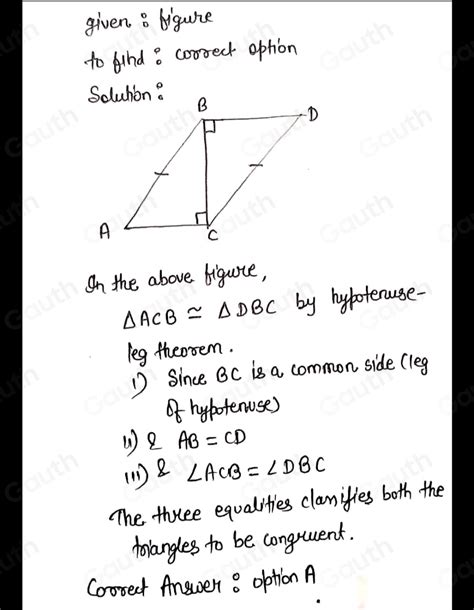 given : figure
to find : correct option
Solution :
B
D
A
C
In the above figure,
△ACB ≃ △DBC by hypotenuse-
leg theorem.
i) Since BC is a common side (leg
of hypotenuse)
ii) & AB = CD
iii) & ∠ACB = ∠DBC
The three equalities clarifies both the
triangles to be congruent.
Correct Answer : option A
.
Gauth